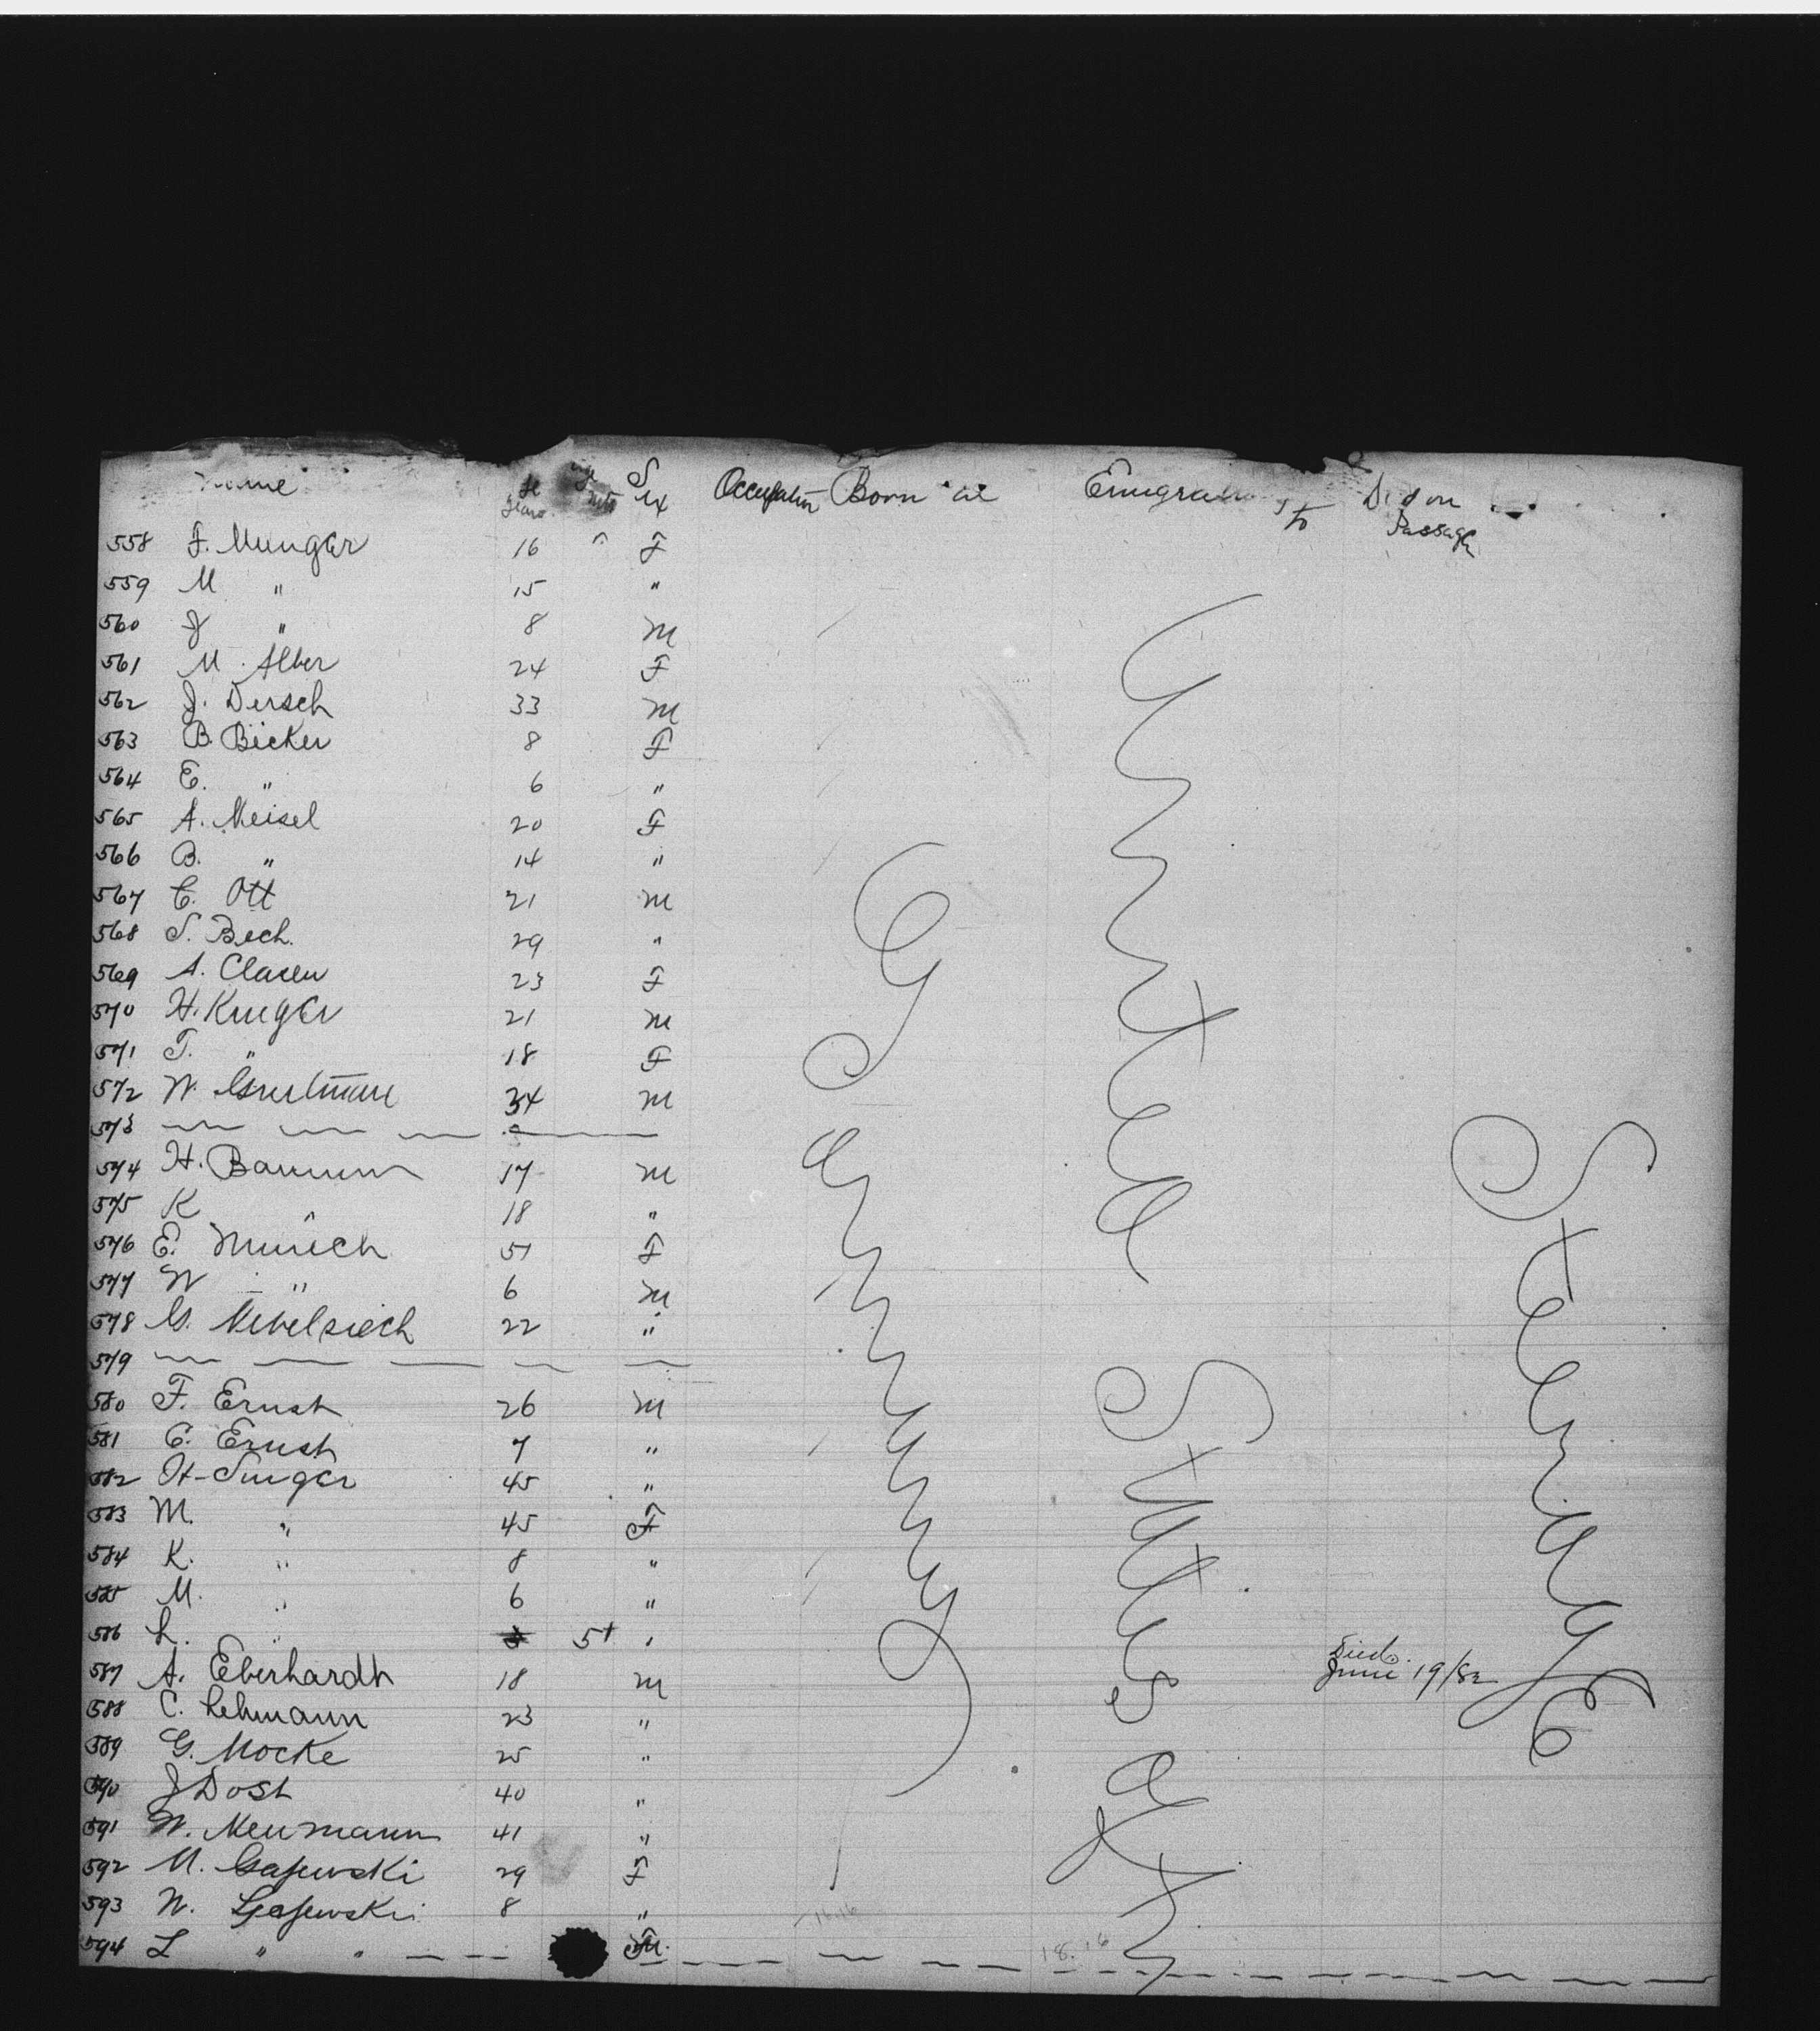 Name Years Sex Occupation Born at Emigrating to Died on Passage
558 F. Mungar 16 F
559 M " 15 "
560 J " 8 M
561 M. Alber 24 F
562 J. Dersch 33 M
563 B. Bicker 8 F
564 E. " 6 "
565 A. Meisel 20 F
566 B. " 14 "
567 C. Ott 21 M
568 S. Bech. 29 "
569 A. Clasen 23 F
570 H. Kruger 21 M
571 T. " 18 F
572 W. 34 M
573
574 H. Baumm 17 M
575 K " 18 "
576 E. Munich 51 F
577 W " 6 M
578 G. Nebelsiech 22 "
579
580 F. Ernst 26 M
581 C. Ernst 7 "
582 H. Singer 45 "
583 M. " 45 F
584 K. " 8 "
585 M. " 6 "
586 L. " 5 "
587 A. Eberhardt 18 M Died June 19/82
588 C. Lehmann 23 "
589 G. Mocke 25 "
590 J Dost 40 "
591 W. Neumann 41 "
592 M. Gajewski 29 F
593 W. Gajewski 8 "
594 L " "
Germany
United States of
Steerage